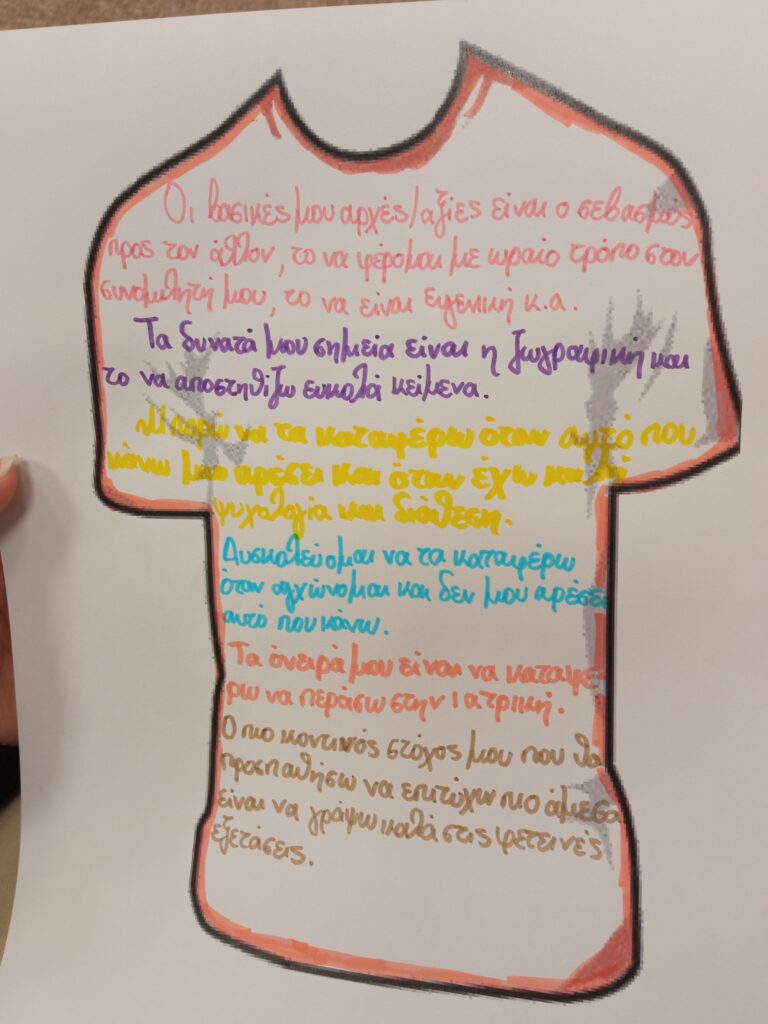 Οι βασικές μου αρχές/αξίες είναι ο σεβασμός
προς τον άλλον, το να φέρομαι με ωραίο τρόπο στον
συνομιλητή μου, το να είναι ευγενική κ.α.
Τα δυνατά μου σημεία είναι η ζωγραφική και
το να αποστηθίζω εύκολα κείμενα.
Μπορώ να τα καταφέρω όταν αυτό που
κάνω μου αρέσει και όταν έχω καλή
ψυχολογία και διάθεση.
Δυσκολεύομαι να τα καταφέρω
όταν αγχώνομαι και δεν μου αρέσει
αυτό που κάνω.
Τα όνειρά μου είναι να καταφέ-
ρω να περάσω στην Ιατρική.
Ο πιο κοντινός στόχος μου που θα
προσπαθήσω να επιτύχω πιο άμεσα
είναι να γράψω καλά στις φετεινές
εξετάσεις.